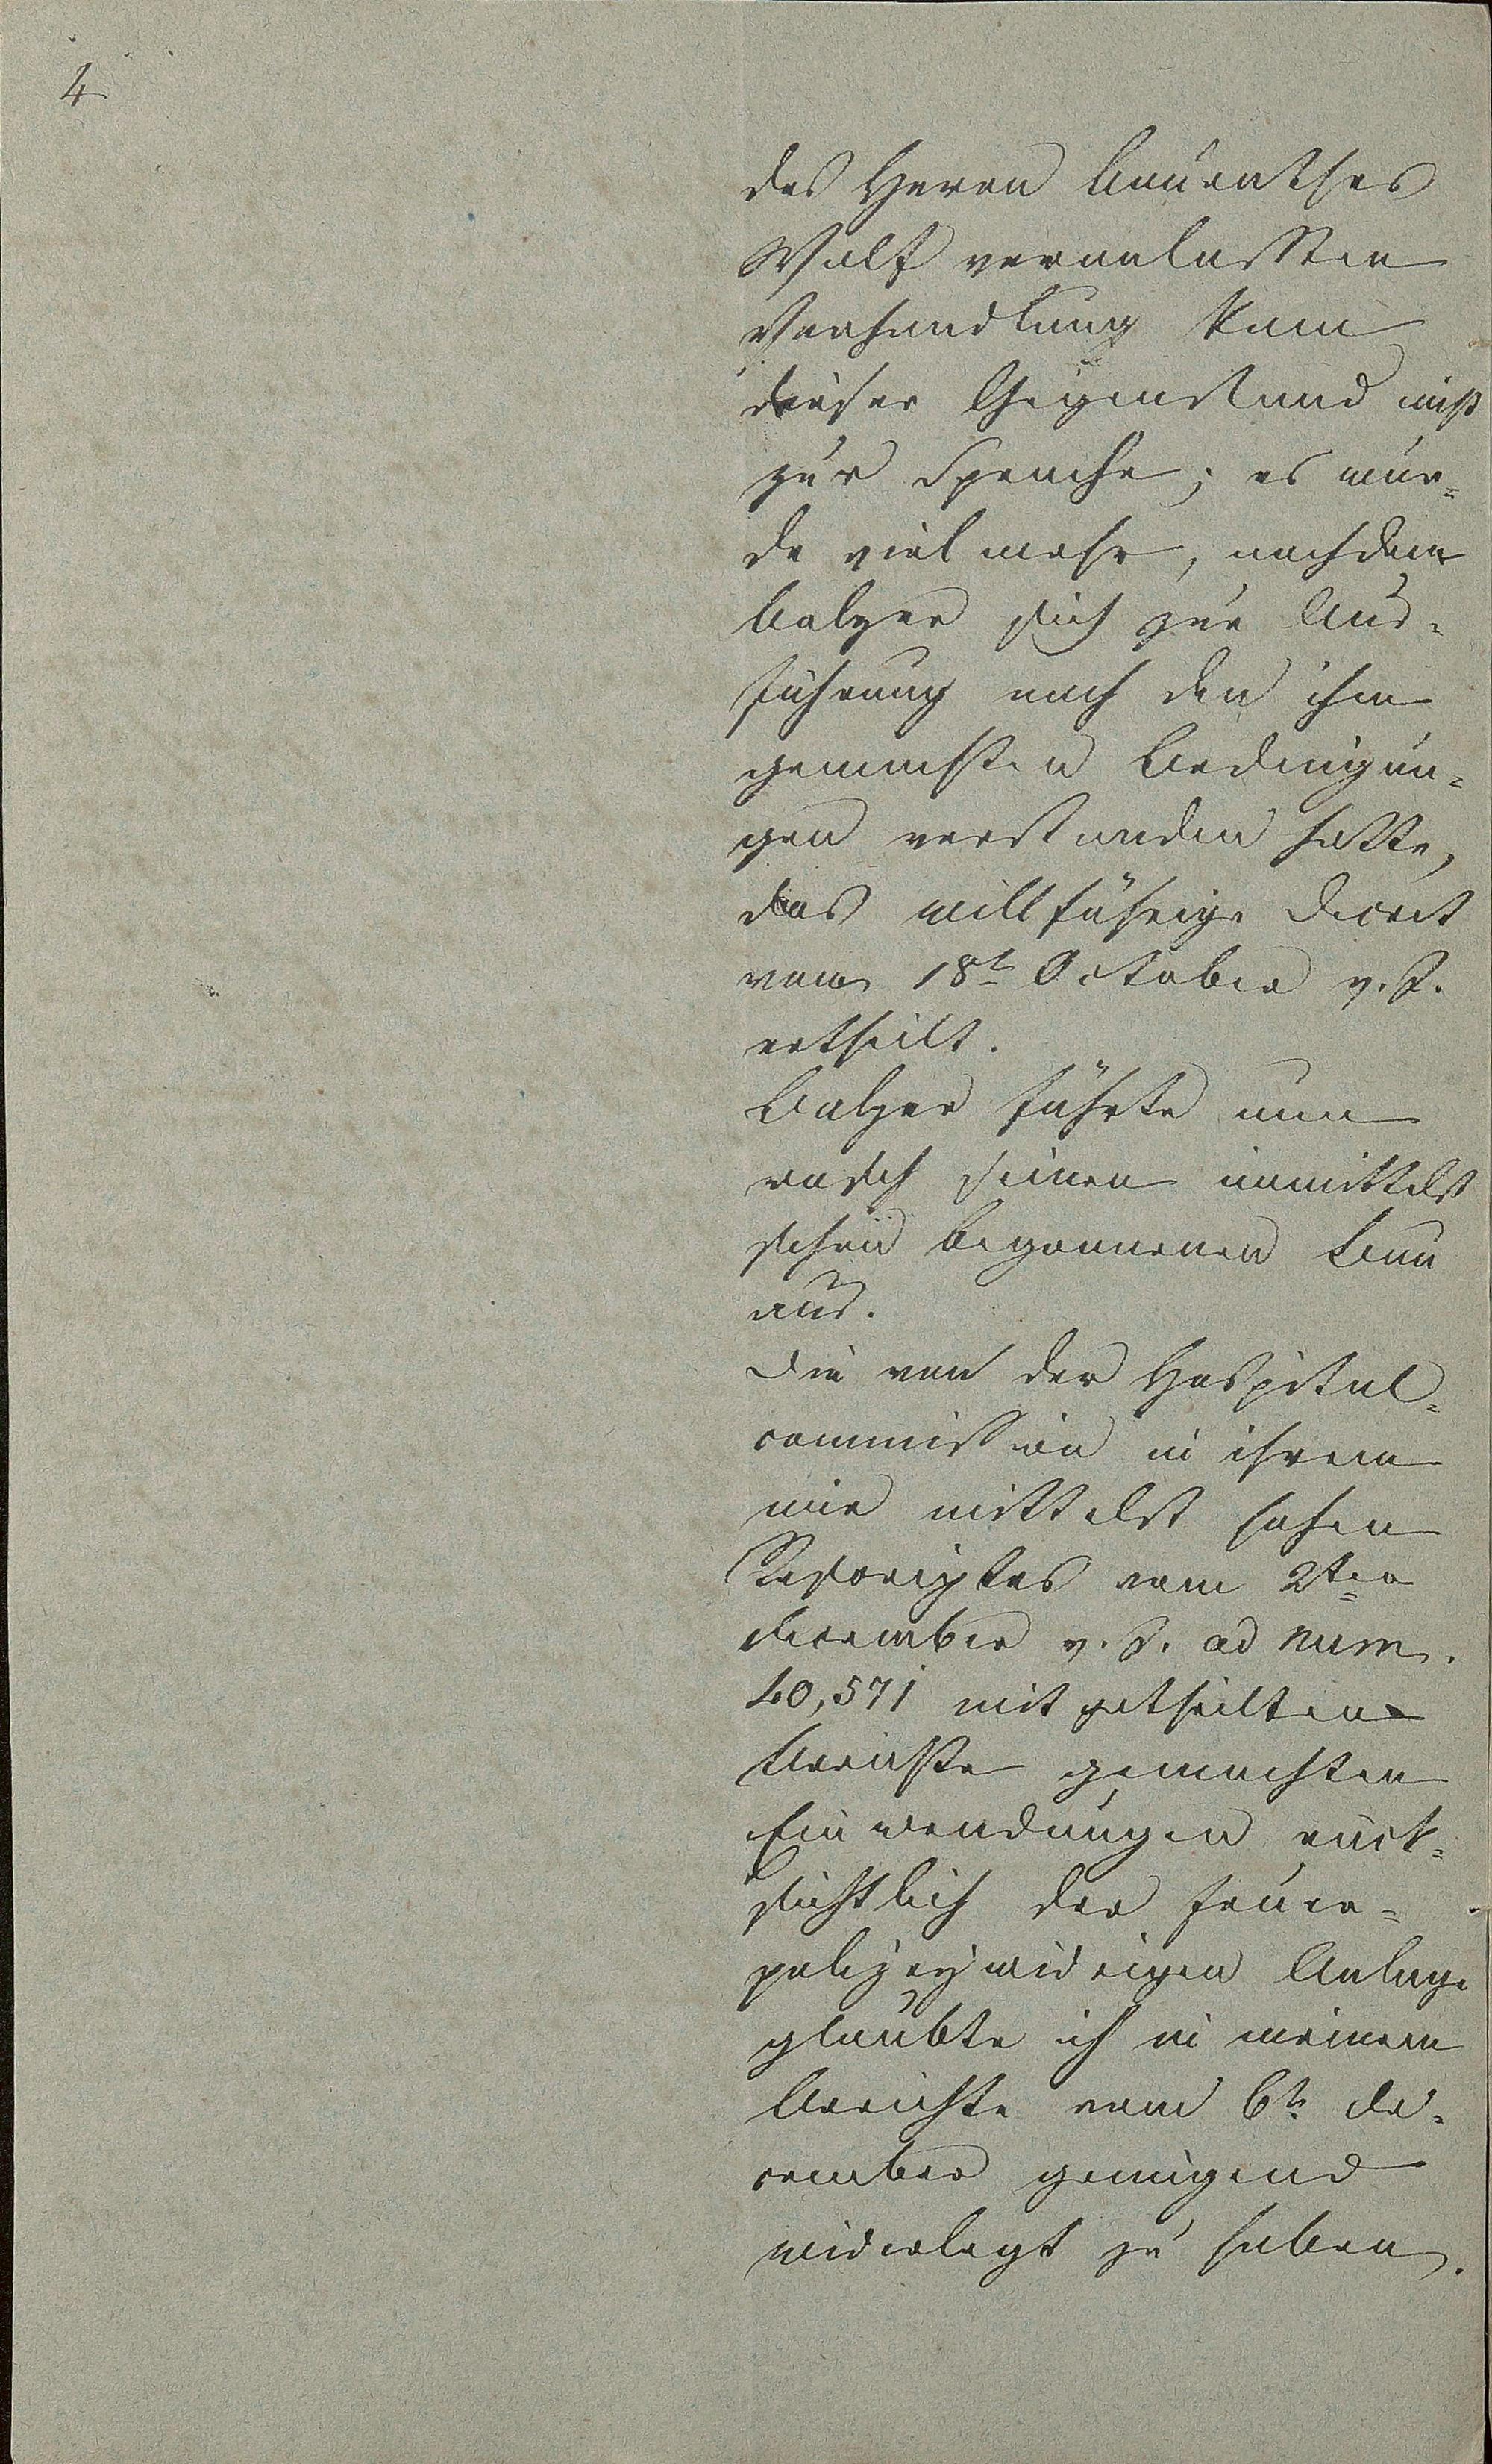 4
des Herrn Baurathes
Wolf veranlaßten
Verhandlung kam
dieser Gegenstand nicht
zur Sprache; es wur-
de viel mehr, nachdem
Balzer sich zur Aus-
führung nach den ihm
gemachten Bedingun-
gen verstanden hatte,
das willfährige Decret
vom 18t October v. J.
ertheilt.
Balzer führte nun
rasch seinen inmittelst
schon begonnenen Bau
aus.
Die von der Hospital-
commission in ihrem
mir mittelst hohen
Rescriptes vom 2ten
December v. J. ad Num.
40,571 mitgetheilten
Berichte gemachten
Einwendungen rück-
sichtlich der feuer-
polizeywidrigen Anlage
glaubte ich in meinem
Berichte vom 6t. De-
cember genügend
widerlegt zu haben.